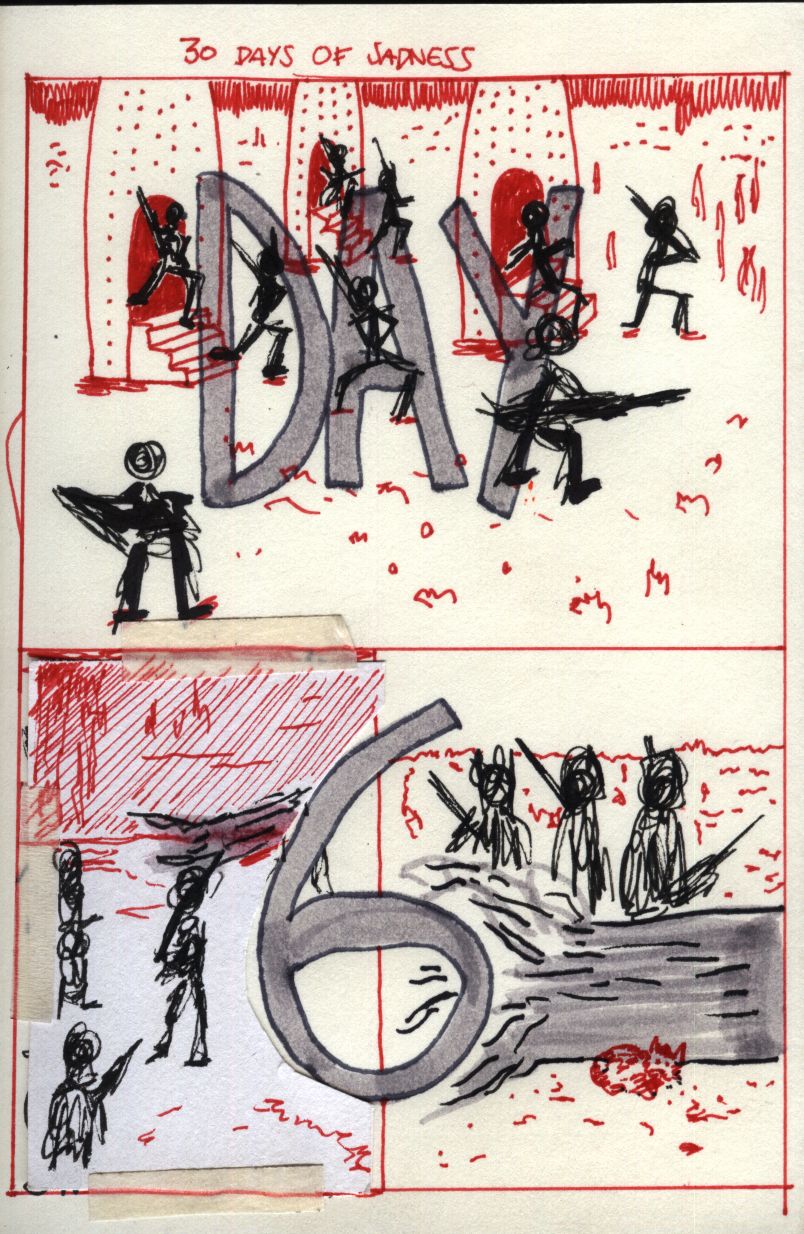 30 DAYS OF SADNESS
DAY
6